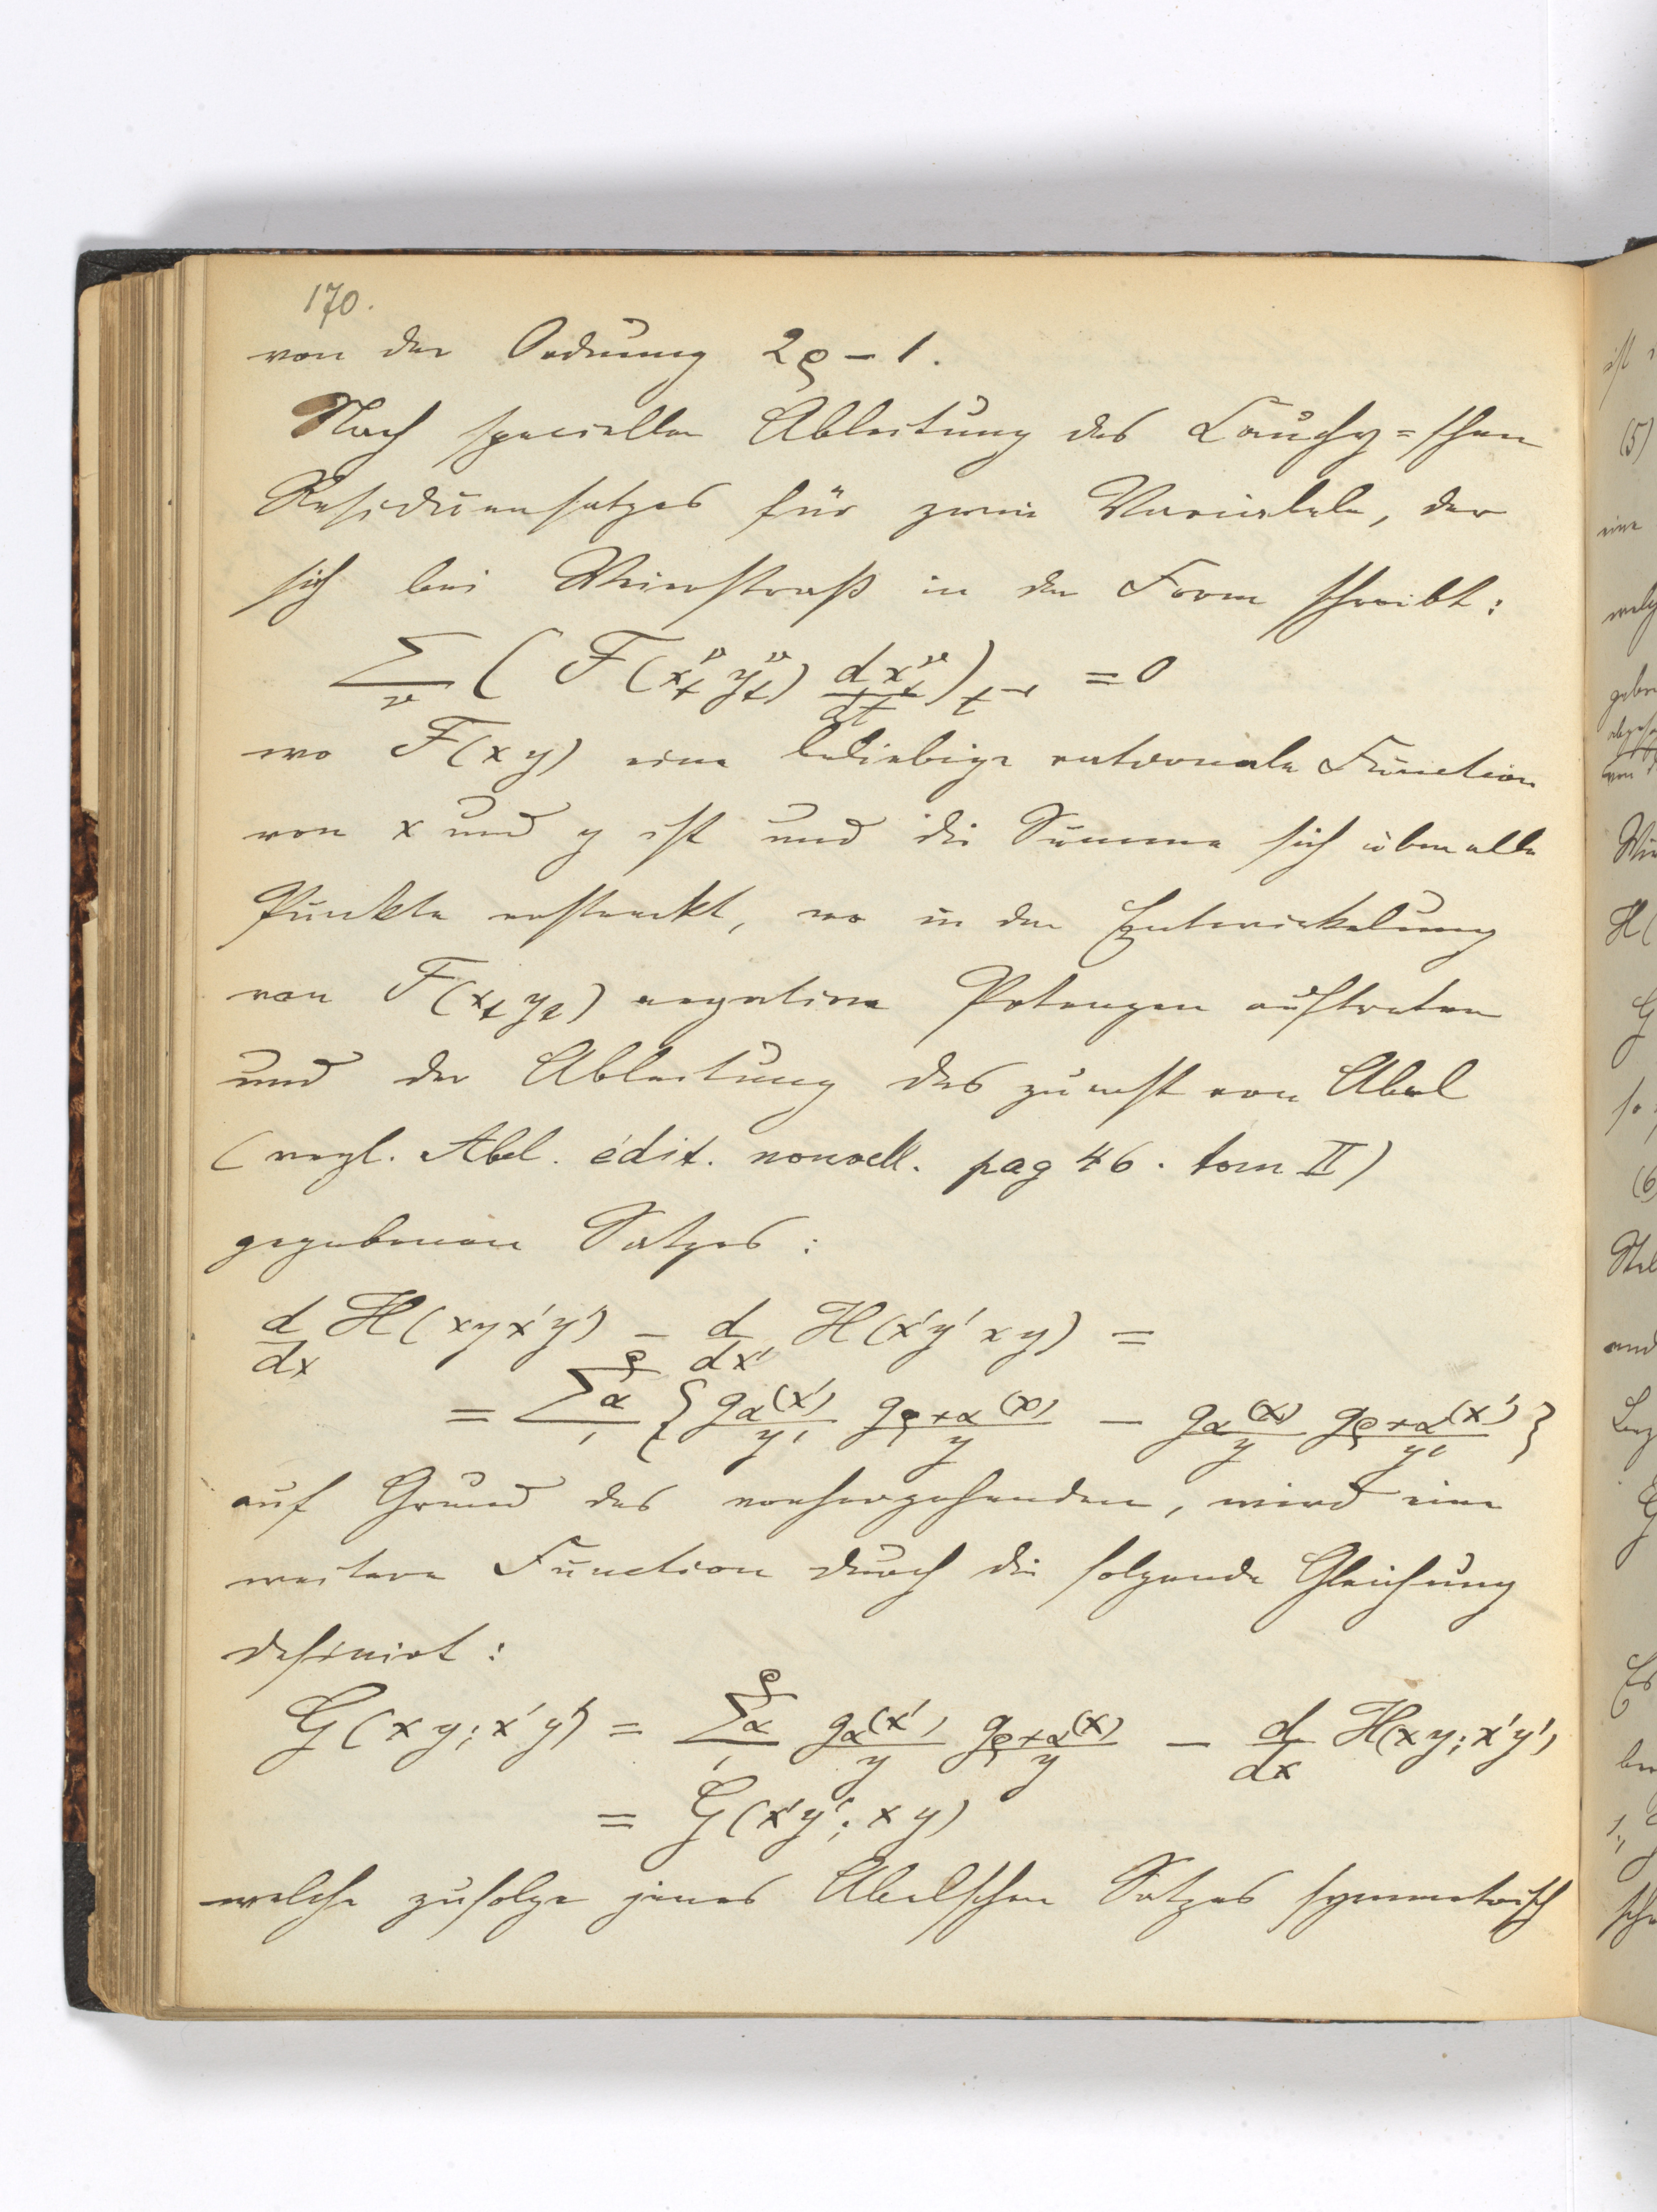 170.
von der Ordnung 2ϱ – 1.
Nach specieller Ableitung des Cauchy=schen
Residuensatzes für zwei Variabele, der
sich bei Weierstraß in der Form schreibt:
∑_ν ( F(x_t^ν y_t^ν) dx_t^ν/dt )_{t^{-1}} = 0
wo F(xy) eine beliebige rationale Function
von x und y ist und die Summe sich über alle
Punkte erstreckt, wo in der Entwickelung
von F(x_t y_t) negative Potenzen auftreten
und der Ableitung des zuerst von Abel
(vergl. Abel. édit. nouvell. pag 46. tom II)
gegebenen Satzes:
d/dx H(xyx'y') – d/dx' H(x'y'xy) =
= ∑_1^ϱ α { g_α(x')/y' g_{ϱ+α}(x)/y – g_α(x)/y g_{ϱ+α}(x')/y' }
auf Grund des vorhergehenden, wird eine
weitere Function durch die folgende Gleichung
definirt:
G(xy; x'y') = ∑_1^ϱ α g_α(x')/y g_{ϱ+α}(x)/y – d/dx H(xy; x'y')
= G(x'y'; xy)
welche zufolge jenes Abelschen Satzes symmetrisch
ist
(5)
eine
H(
G
so
(6
und
Es